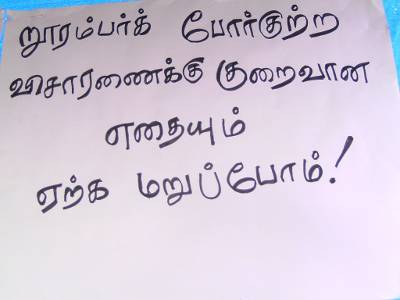 நூரம்பர்க் போர்குற்ற
விசாரணைக்கு குறைவான
எதையும்
ஏற்க மறுப்போம்!